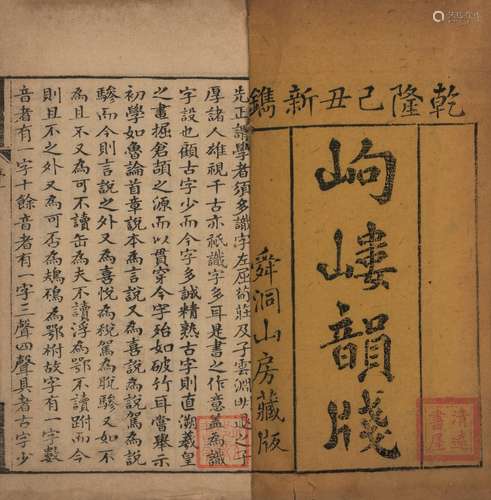 乾隆己丑新鐫
岣嶁韻牋
舜洞山房藏版
清遠書屋
先正謂學者須多識字左屈荀莊及子雲淵明退之子
厚諸人雄視千古亦祇識字多耳是書之作意蓋為識
字設也顧古字少而今字多誠精熟古字則直溯羲皇
之畫掘倉頡之源而以貫穿今字殆如破竹耳嘗舉示
初學如魯論首章說本為言說又為喜說為說駕為說
驂而今則言說之外又為喜悅為稅駕為脫驂又如不
為且不又為可不讀缶為夫不讀浮為鄂不讀跗而今
則且不之外又為可否為鳺鴀為鄂柎故字有一字數
音者有一字十餘音者有一字三聲四聲具者古字少